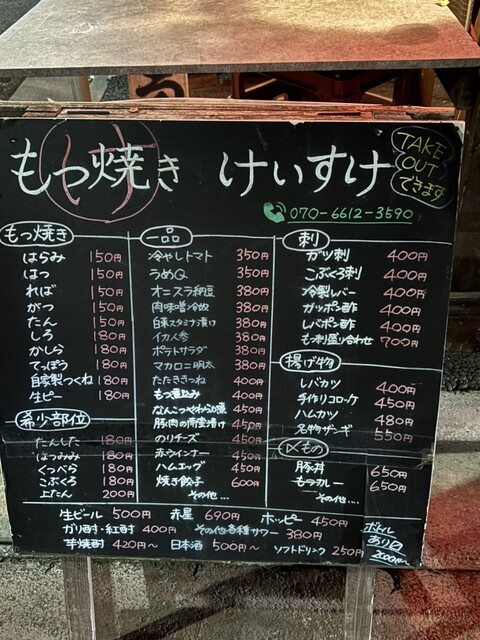 もつ焼き けいすけ
TAKE
OUT
できます
070-6612-3590
もつ焼き
はらみ 150円
はつ 150円
れば 150円
がつ 150円
たん 150円
しろ 180円
かしら 180円
てっぽう 180円
自家製つくね 180円
生ピー 180円
希少部位
たんした 180円
はつみみ 180円
くつべら 180円
こぶくろ 180円
上たん 200円
一品
冷やしトマト 350円
うめQ 350円
オニスラ納豆 380円
肉味噌冷奴 380円
白菜スタミナ漬け 380円
イカ人参 380円
ポテトサラダ 380円
マカロニ明太 380円
たたききつね 400円
もつ煮込み 400円
なんこつやわらか煮 450円
豚肉の南蛮漬け 450円
のりチーズ 450円
赤ウインナー 450円
ハムエッグ 450円
焼き餃子 600円
その他…
刺
ガツ刺 400円
こぶくろ刺 400円
冷製レバー 400円
ガッポン酢 400円
レバポン酢 400円
もつ刺し盛り合わせ 700円
揚げ物
レバカツ 400円
手作りコロッケ 450円
ハムカツ 480円
名物ザンギ 550円
〆もの
豚丼 650円
もつカレー 650円
その他…
生ビール 500円 赤星 690円 ホッピー 450円
ガリ酎・紅酎 400円 その他各種サワー 380円
芋焼酎 420円〜 日本酒 500円〜 ソフトドリンク 250円
ボトル
あり□
2000円〜